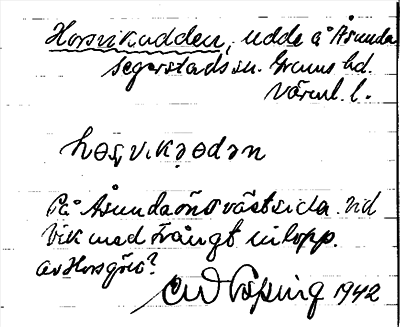 Horsvikudden, udde å Åsunda
Segerstads sn. Grums hd.
Värml. l.
På Åsundaöns västsida. Vid
vik med trångt inlopp.
av Horsgös?
1942